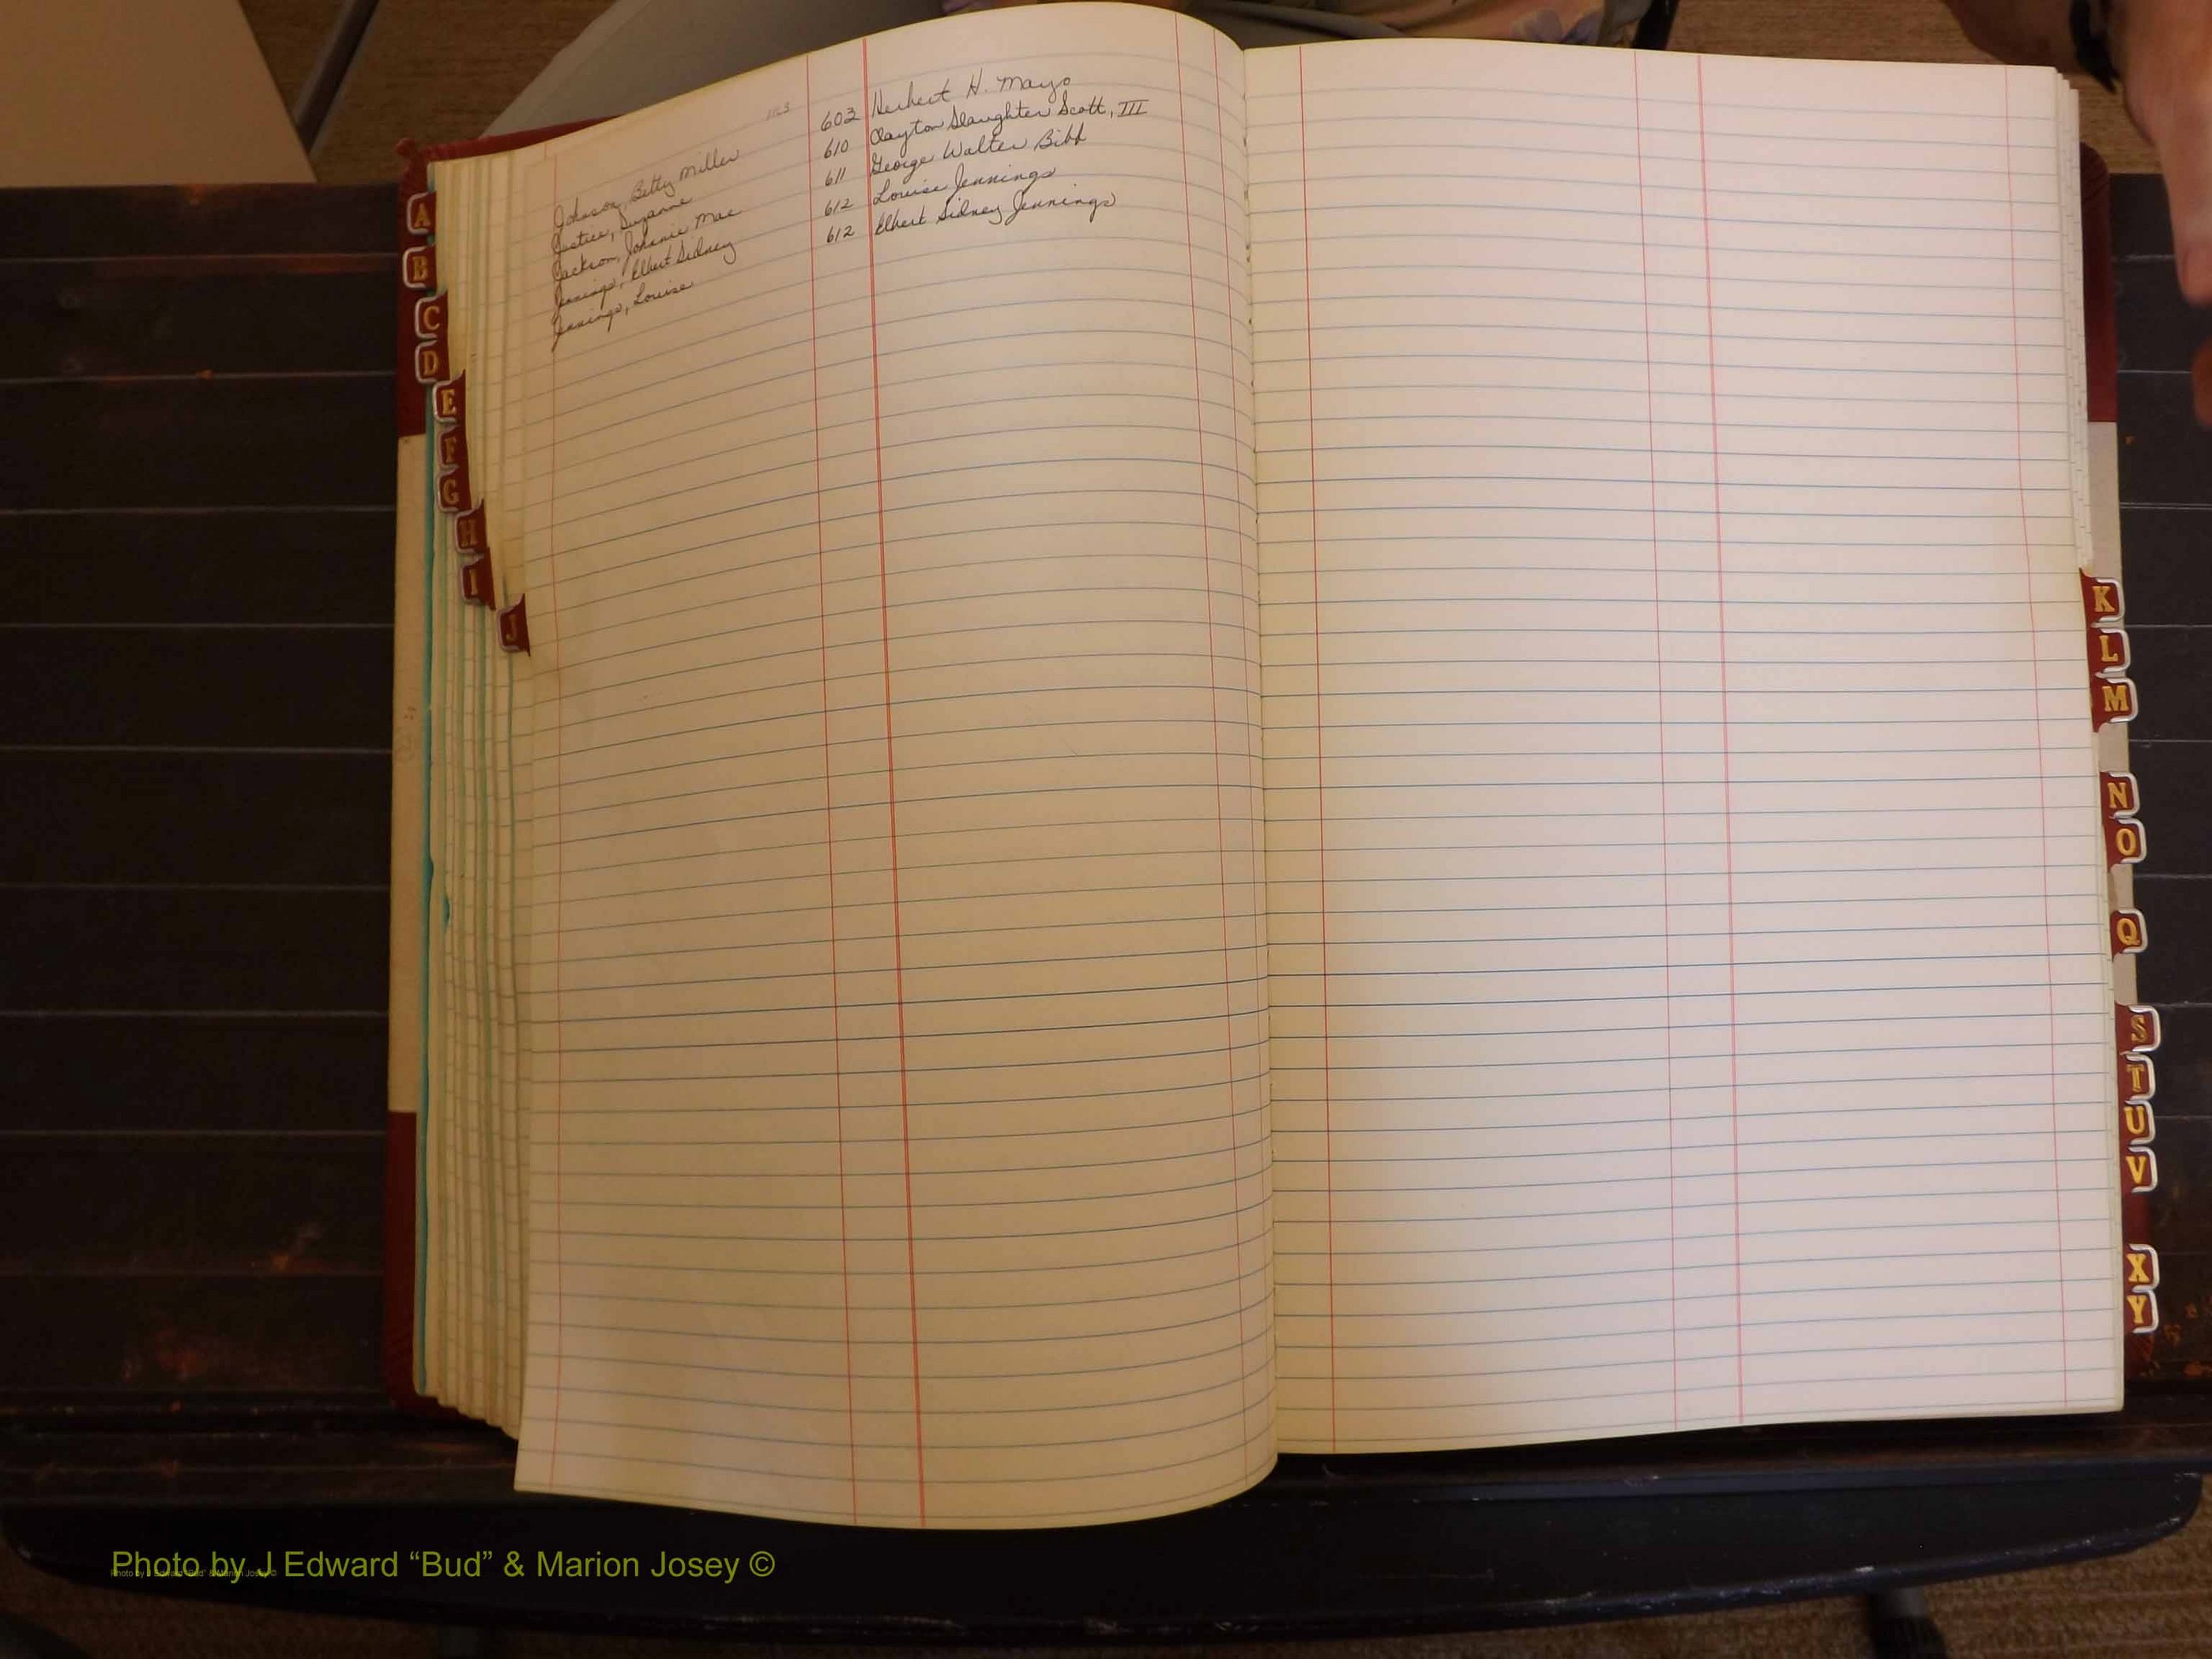 Johnson, Betty Miller 603 Herbert H. Mayo
Justice, Suzanne 610 Clayton Slaughter Scott, III
Jackson, Johnnie Mae 611 George Walter Bibb
Jennings, Elbert Sidney 612 Louise Jennings
Jennings, Louise 612 Elbert Sidney Jennings
A
B
C
D
E
F
G
H
I
J
K
L
M
N
O
Q
S
T
U
V
X
Y
Photo by J Edward “Bud” & Marion Josey ©
Photo by J Edward “Bud” & Marion Josey ©